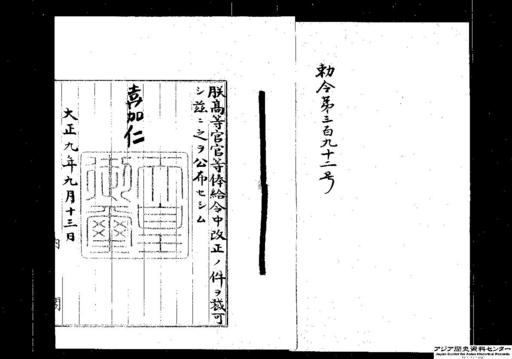 勅令第三百九十二号
朕高等官官等俸給令中改正ノ件ヲ裁可
シ茲ニ之ヲ公布セシム
嘉仁
天皇御璽
大正九年九月十三日
内 閣
アジア歴史資料センター
Japan Center for Asian Historical Records